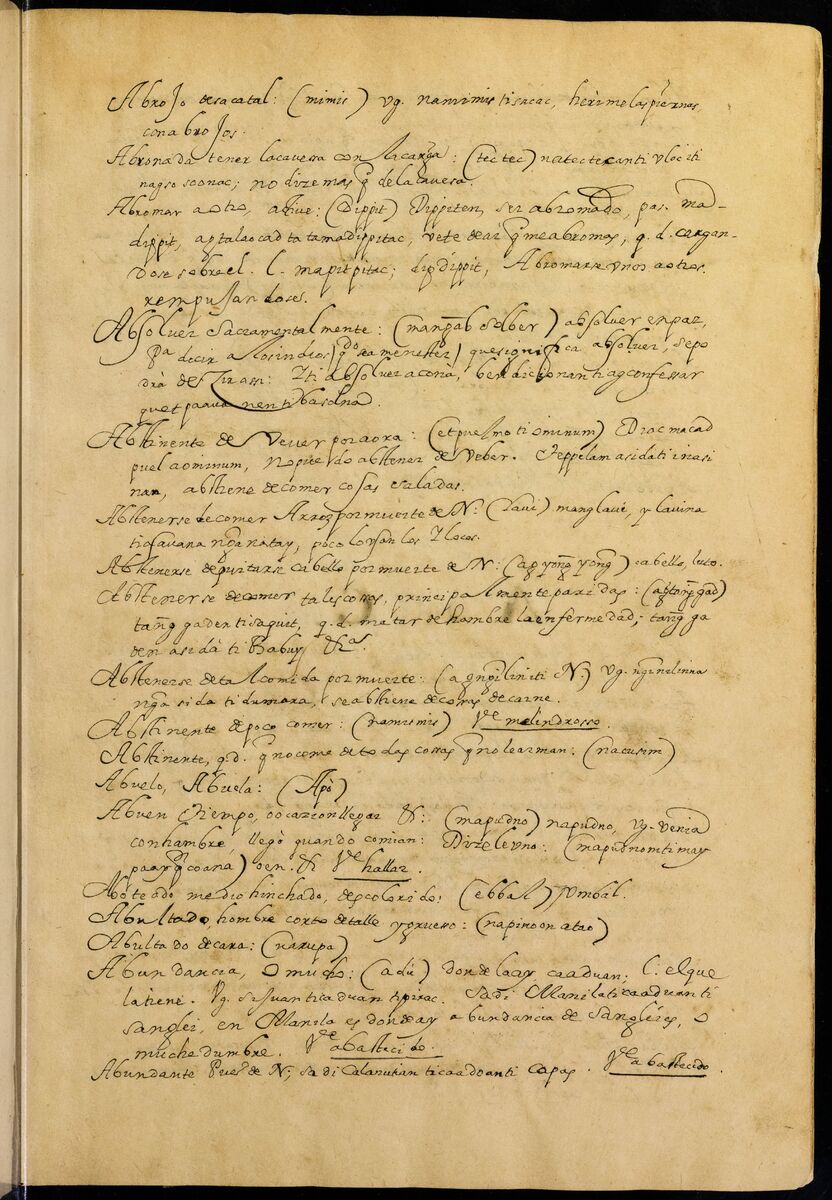 Abrojo de sacatal: (mimis) vg. namimis ti sacac, herime las piernas
con abrojos.
Abronada tener la caveza con la carga: (tectec) natectecanti vlo iti
nagsoonac; no dize mas q̃ de la caveza.
Abromar a otro, actiue: (Dippit) Dippiten, ser abromado, pas. ma-
dippit, aptalaocad ta tamadippitac, vete de ai q̃ me abromas, q. d. cargan-
dose sobre el. l. mapitpitac; dipdippit, Abromarse vnos a otros
rempujandoses.
Absolver sacramentalmente: (mangab solber) absolver en paz,
pa decir a los indios, qdo sea menester, que significa absolver, se po
drà dezir assi: Iti absolver a conà, bendicion anti ag confessar
que t paava nenti basolna d.
Abstinente de vever por aora: (et puelmo ti ominum) Diac macad
puel a ominum, no puedo abstener de veber.
nan, abstiene de comer cosas saladas.
Abstenerse de comer Arroz por muerte de N: (Lavi) manglavi, y lavina
ti navana nḡa natay, poco lo vsan los Ylocos.
Abstenerse de quitarse cabello por muerte de N: cabello, luto.
Abstenerse de comer tales cossas, principalmente paridas:
tanḡgaden ti saquit, q. d. matar de hambre la enfermedad; tanḡga
den a si dà ti Babuy &ca.
Abstenerse de tal comida por muerte: (agnḡiliniti N.) vg. nḡinilinna
nḡa si da ti dumara, se abstiene de cosas de carne.
Abstinente de poco comer: (namismis) Ve melindrosso.
Abstinente, q.d. q̃ no come de todas cossas q̃ no le arman: (nacusim)
Abuelo, Abuela: (Apò)
Abuen tiempo, o ocazion llegar &: (mapudno) napudno, vg. venia
con hambre, llegò quando comian: Dizele vno: (mapudnom ti may
paay q̃ coana) oen. & Ve hallar.
Aboteado medio hinchado, descolorido: (ebbal) pumbal.
Abultado, hombre corto de talle y grueso: (napinoon a tao)
Abultado de cara: (narupa)
Abundancia, o mucho: (adù) donde la ay, caaduan; l: el que
la tiene. Vg. si Juan ti caaduan ti pirac. Sadi Manila ti caaduan ti
sanglei, en Manila es donde ay abundancia de sangleies, o
muchedumbre. Ve abastecido.
Abundante Pueo de N; sadi Calanutian ti caadoanti capas. Ve abastecido.